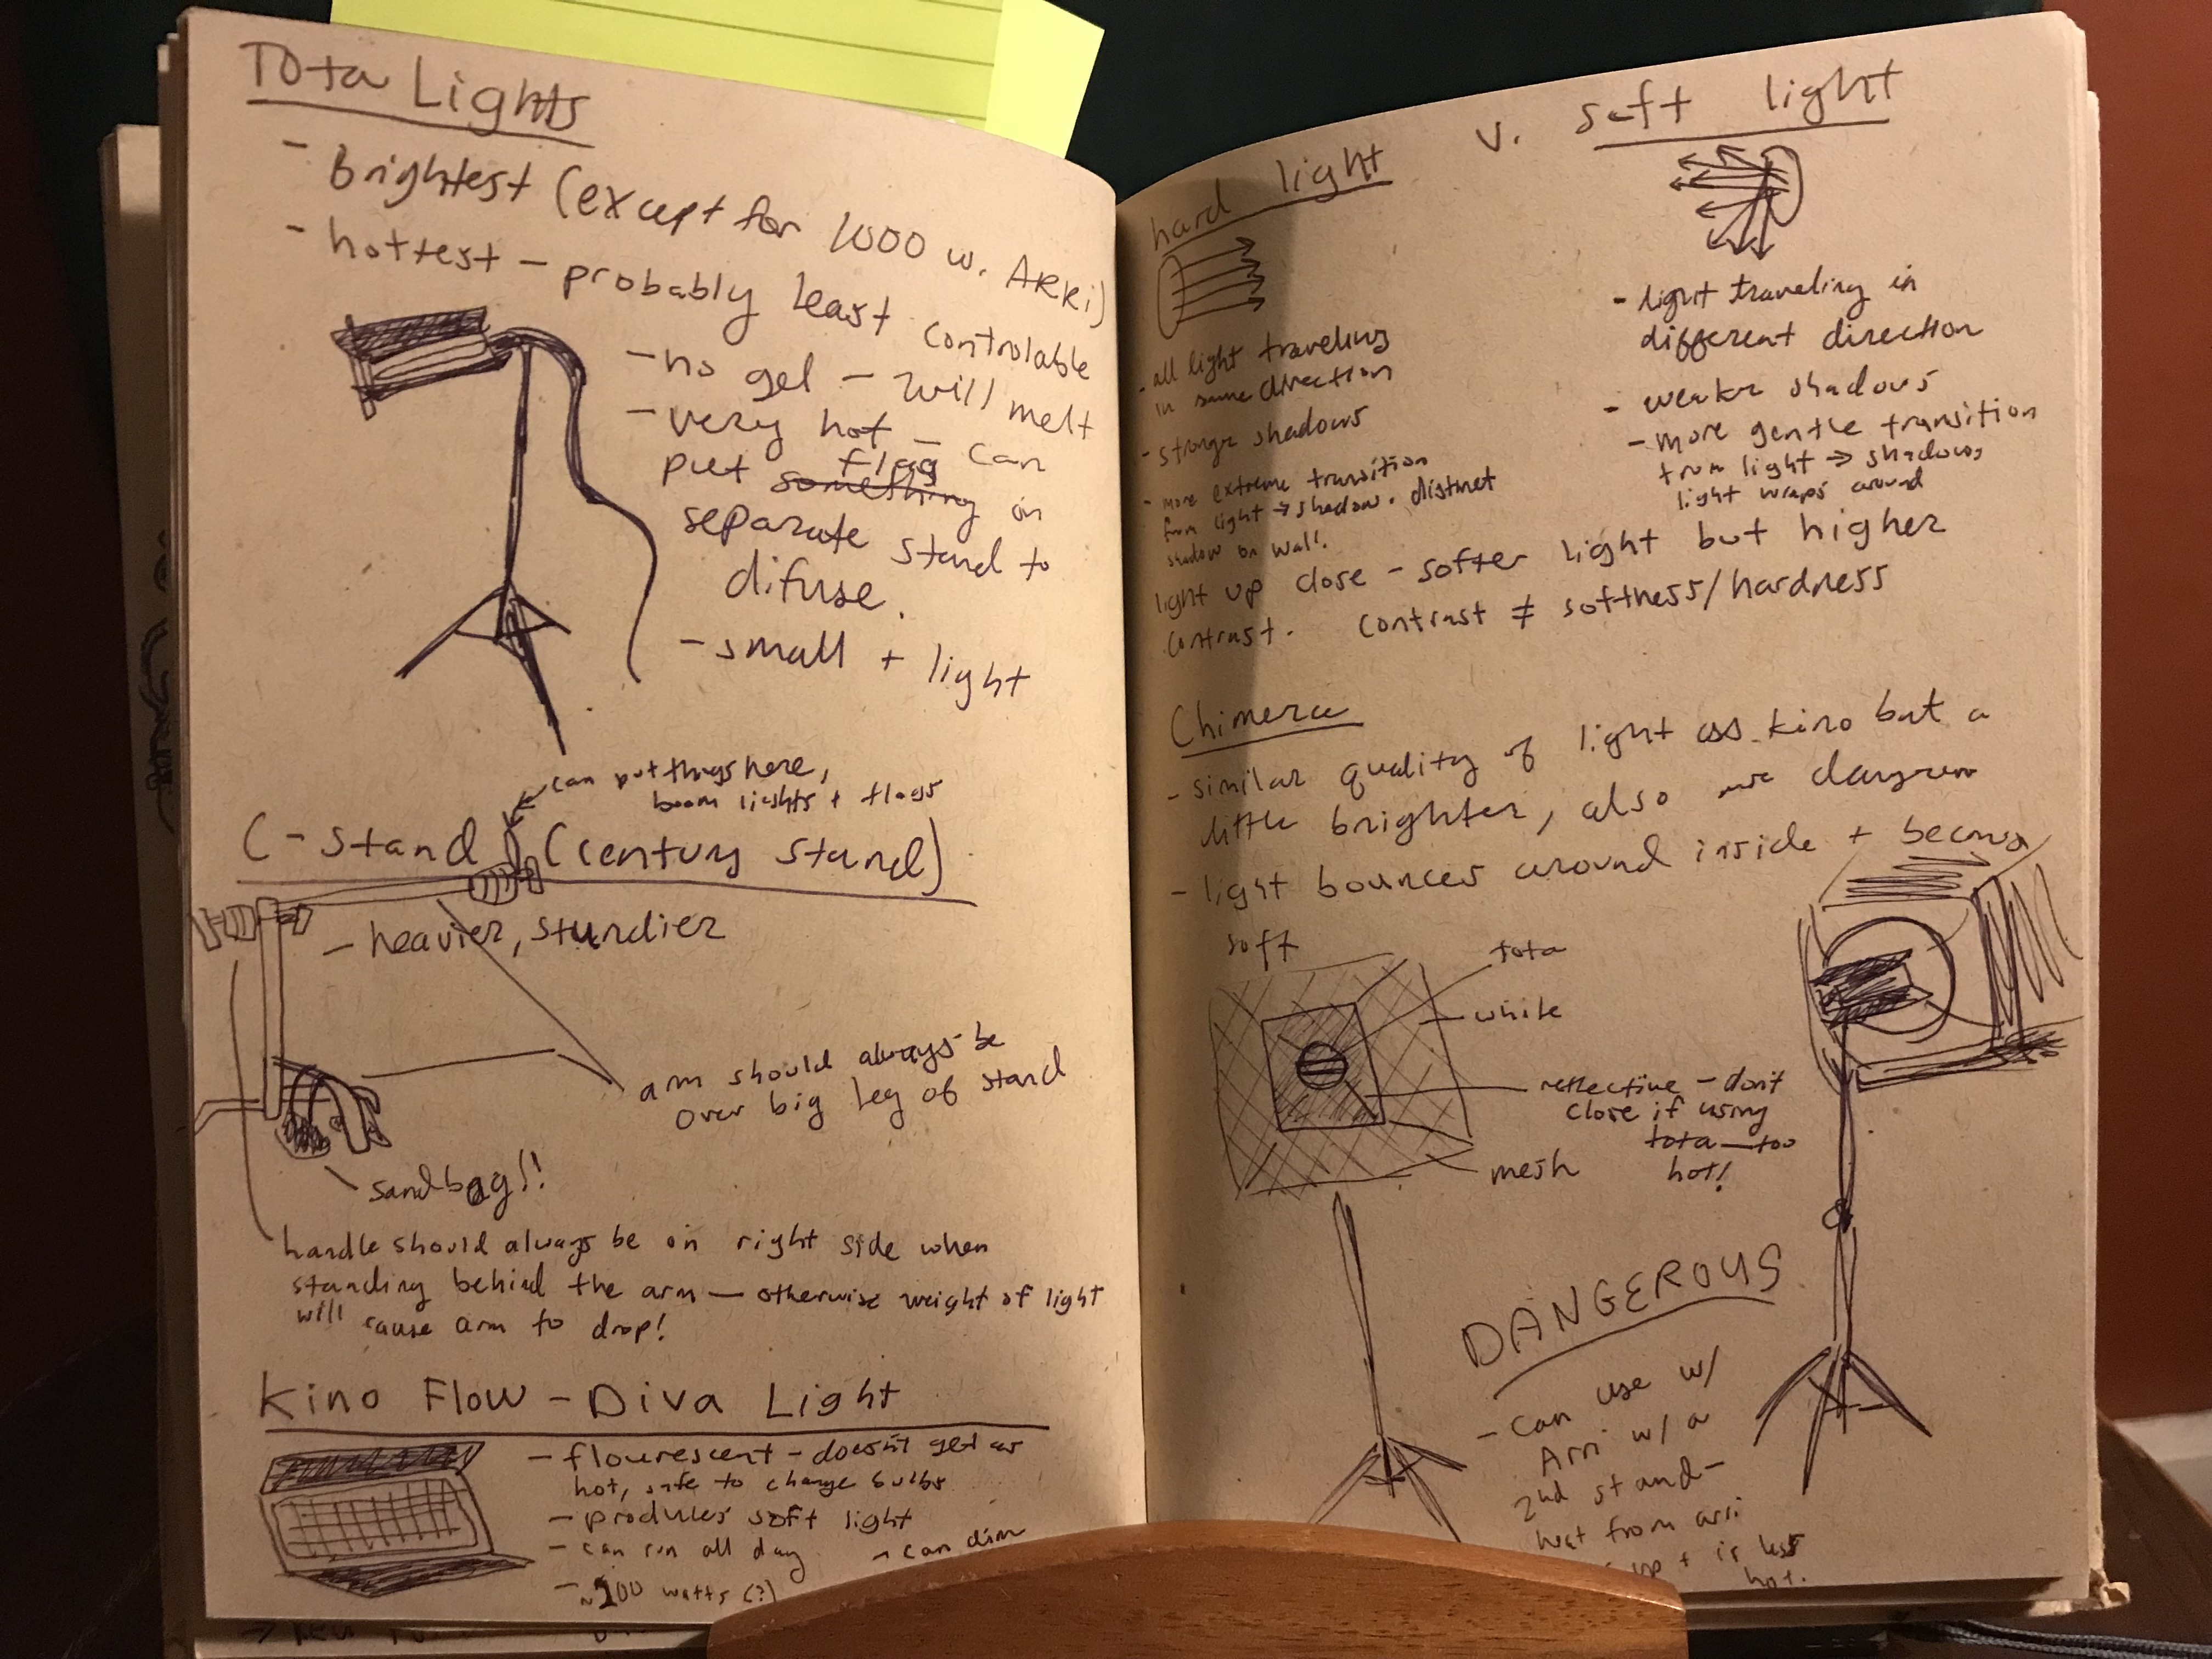 Tota Lights
- Brightest (except for 1000 w. ARRi)
- hottest - probably least controlable
- no gel - will melt
- very hot - can
put something flag on
separate stand to
difuse.
- small + light
can put things here,
boom lights + flags
C-stand (century stand)
- heavier, sturdier
arm should always be
over big leg of stand
sandbag!!
handle should always be on right side when
standing behind the arm — otherwise weight of light
will cause arm to drop!
Kino Flow - Diva Light
- flourescent - doesn't get as
hot, safe to change bulbs
- produces soft light
- can run all day
- can dim
- ~200 watts (?)
hard light v. soft light
- all light traveling
in same direction
- stronger shadows
- more extreme transition
from light → shadow. distinct
shadow on wall.
- light traveling in
different direction
- weaker shadows
- more gentle transition
from light → shadows,
light wraps around
light up close - softer light but higher
contrast. contrast ≠ softness/hardness
Chimera
- similar quality of light as kino but a
little brighter, also
- light bounces around inside + becomes
soft
tota
white
reflective - don't
close if using
tota — too
hot!
mesh
DANGEROUS
- Can use w/
Arri w/ a
2nd stand -
heat from arri
up + is less
hot.